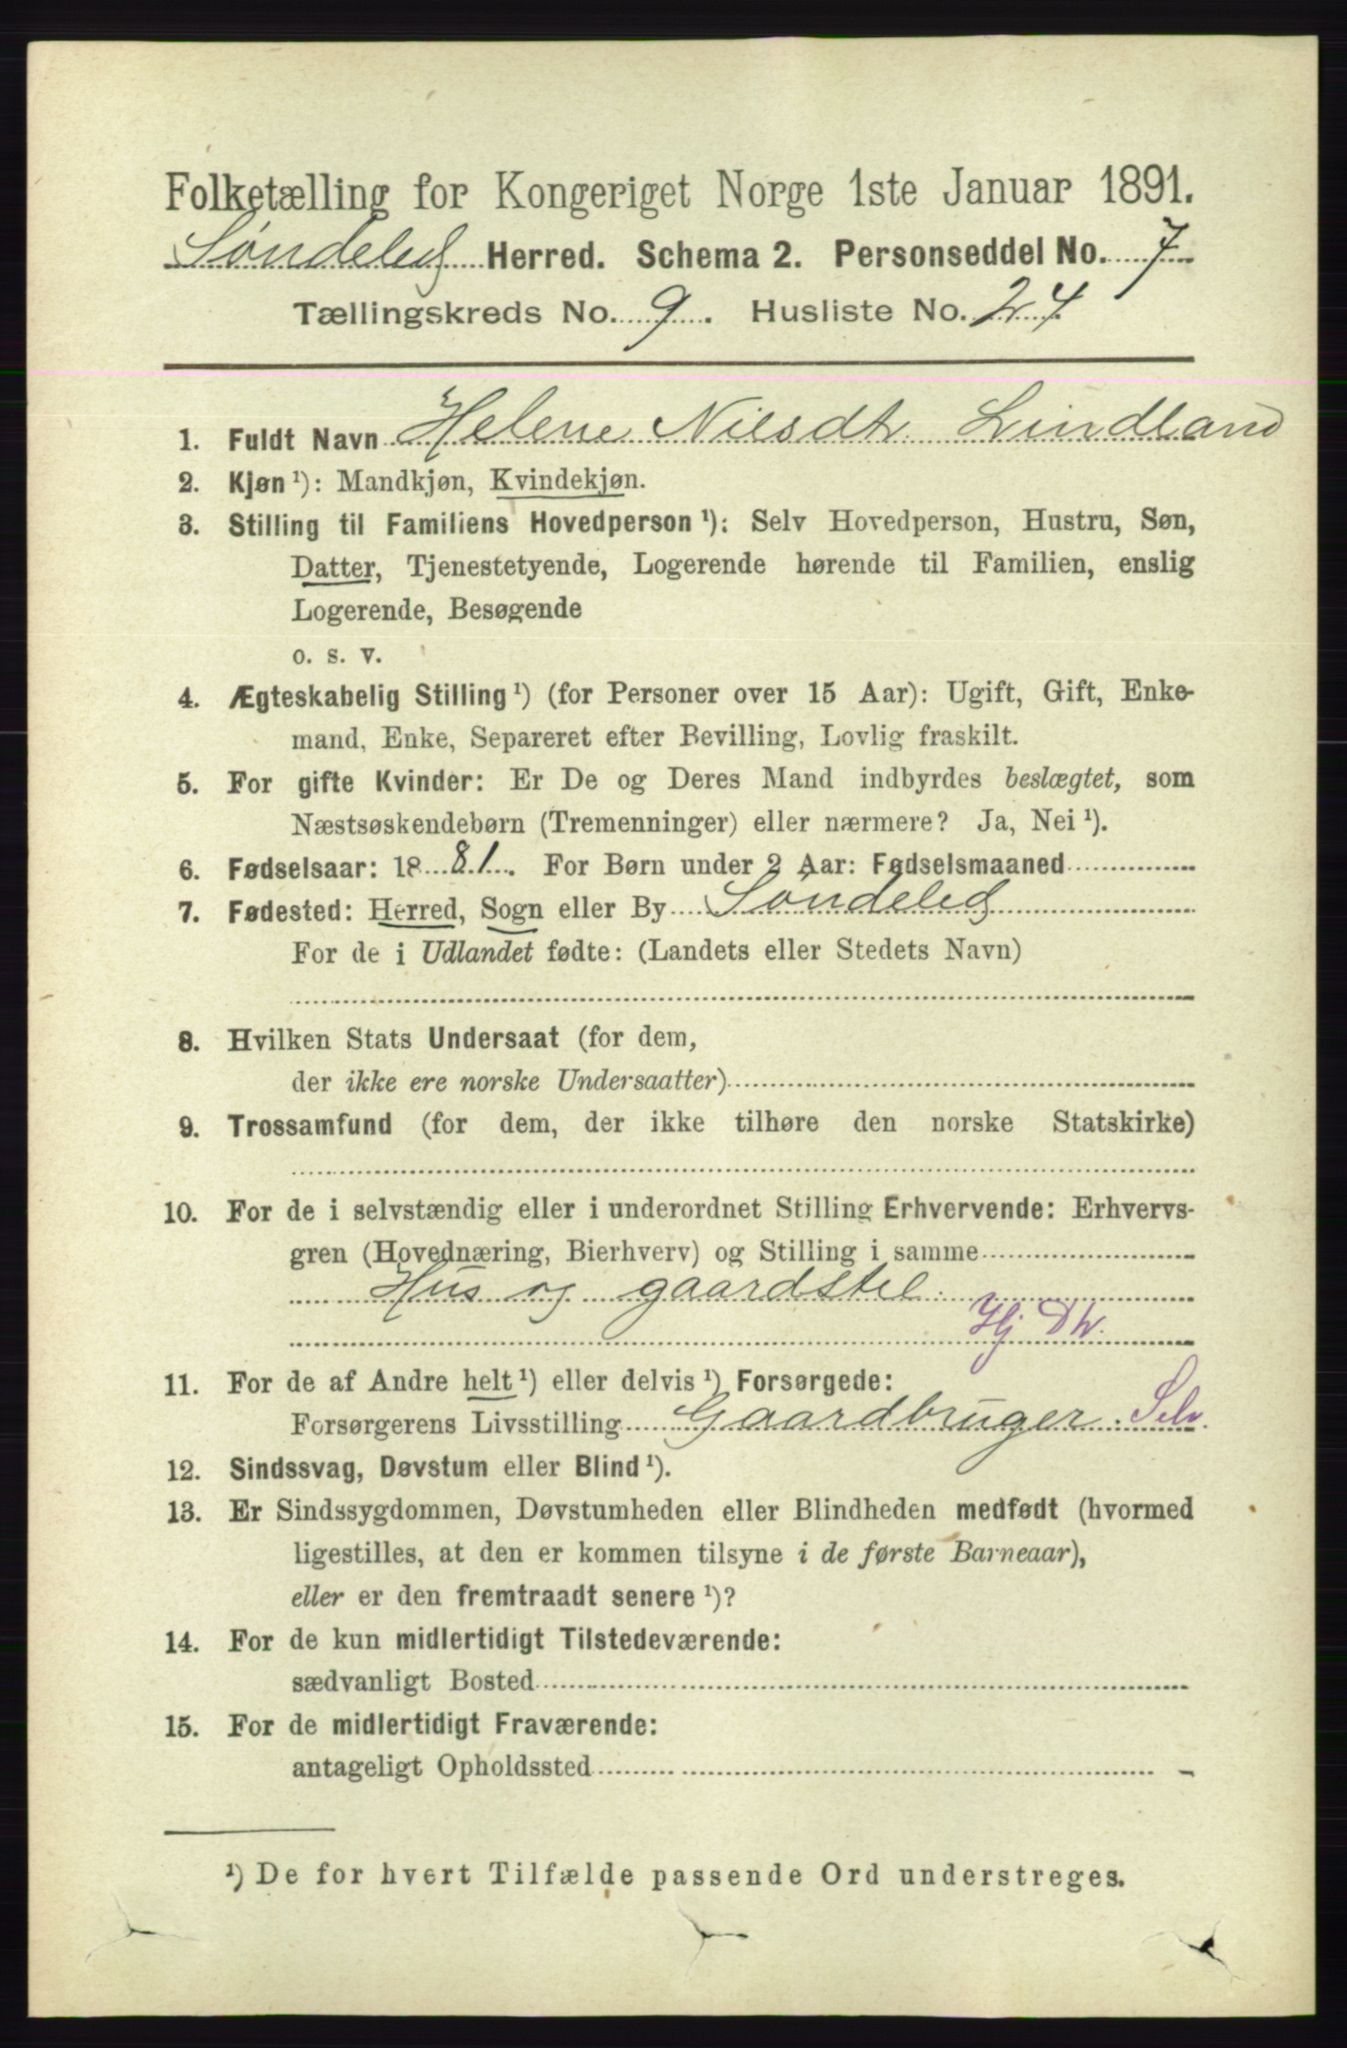 Folketælling for Kongeriget Norge 1ste Januar 1891.
Søndeled Herred. Schema 2. Personseddel No. 7
Tællingskreds No. 9. Husliste No. 24
1. Fuldt Navn Helene Nilsdt. Lindland
2. Kjøn ¹): Mandkjøn, Kvindekjøn.
3. Stilling til Familiens Hovedperson ¹): Selv Hovedperson, Hustru, Søn,
Datter, Tjenestetyende, Logerende hørende til Familien, enslig
Logerende, Besøgende
o. s. v.
4. Ægteskabelig Stilling ¹) (for Personer over 15 Aar): Ugift, Gift, Enke-
mand, Enke, Separeret efter Bevilling, Lovlig fraskilt.
5. For gifte Kvinder: Er De og Deres Mand indbyrdes beslægtet, som
Næstsøskendebørn (Tremenninger) eller nærmere? Ja, Nei ¹).
6. Fødselsaar: 1881. For Børn under 2 Aar: Fødselsmaaned
7. Fødested: Herred, Sogn eller By Søndeled
For de i Udlandet fødte: (Landets eller Stedets Navn)
8. Hvilken Stats Undersaat (for dem,
der ikke ere norske Undersaatter)
9. Trossamfund (for dem, der ikke tilhøre den norske Statskirke)
10. For de i selvstændig eller i underordnet Stilling Erhvervende: Erhvervs-
gren (Hovednæring, Bierhverv) og Stilling i samme
Hus og gaardstel.
Hj Dtr.
11. For de af Andre helt ¹) eller delvis ¹) Forsørgede:
Forsørgerens Livsstilling Gaardbruger. Selv.
12. Sindssvag, Døvstum eller Blind ¹).
13. Er Sindssygdommen, Døvstumheden eller Blindheden medfødt (hvormed
ligestilles, at den er kommen tilsyne i de første Barneaar),
eller er den fremtraadt senere ¹)?
14. For de kun midlertidigt Tilstedeværende:
sædvanligt Bosted
15. For de midlertidigt Fraværende:
antageligt Opholdssted
¹) De for hvert Tilfælde passende Ord understreges.